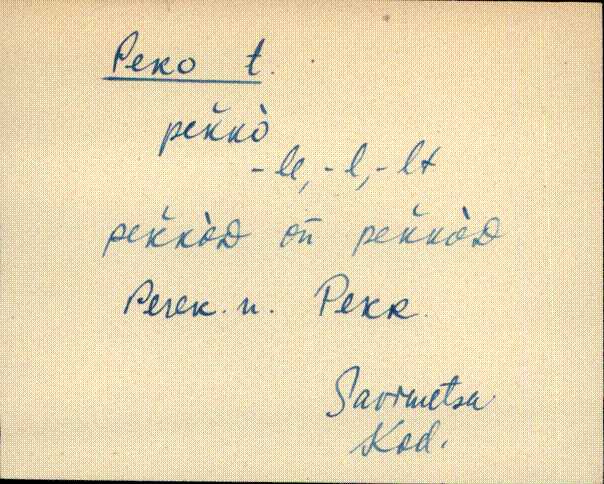 Peko t.
pek̆kò
-le, -l, -lt
pek̆kòD on̄ pek̆kòD
Perek. n. Pekk.
Savimetsa
Kod.